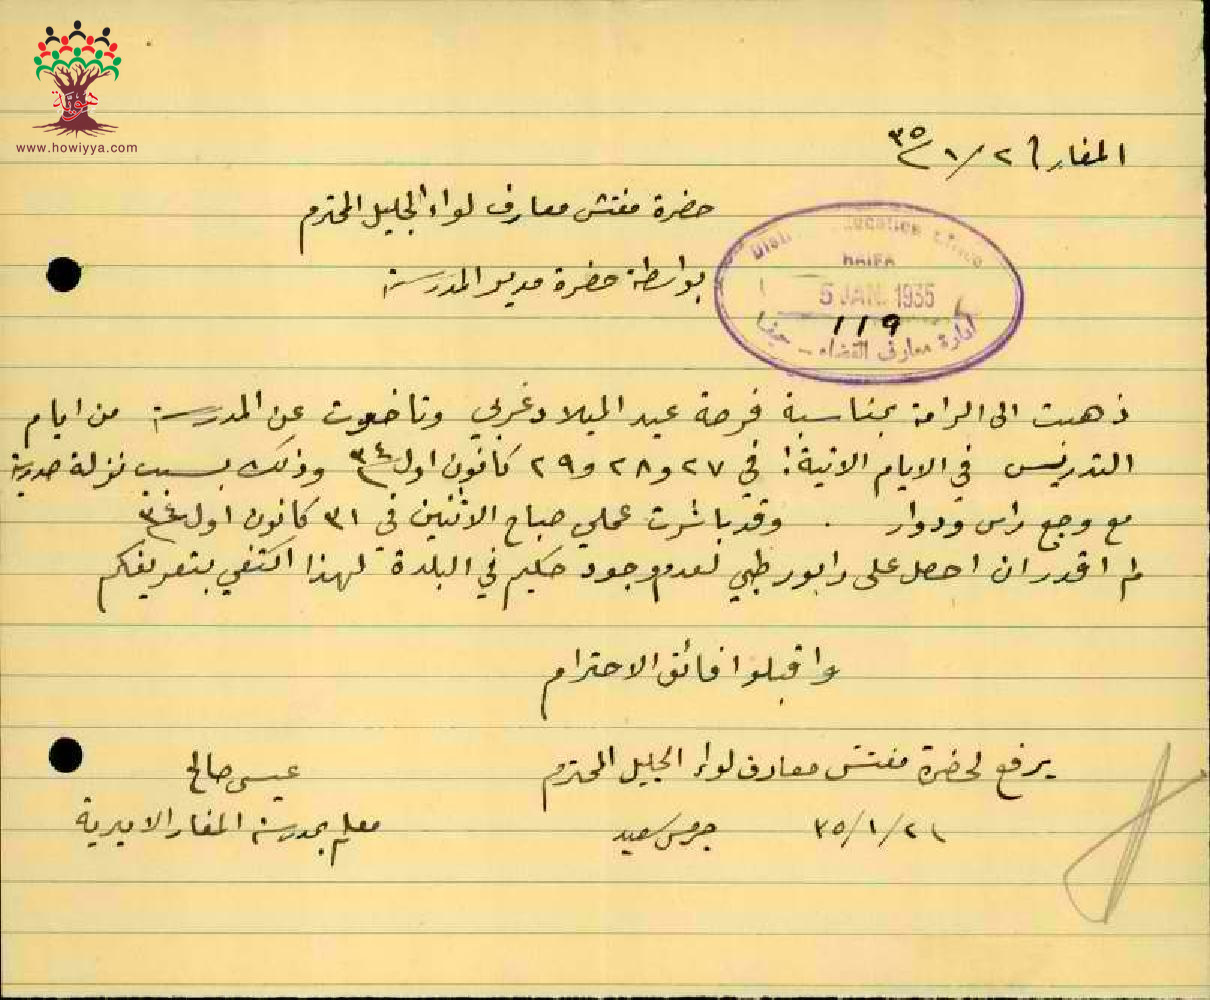 هوية
www.howiyya.com
المغار في ٢/١/٣٥
حضرة مفتش معارف لواء الجليل المحترم
بواسطة حضرة مدير المدرسة
District Education Office
HAIFA
5 JAN. 1935
١١٩
ادارة معارف القضاء – حيفا
ذهبت الى الرامة بمناسبة فرصة عيد الميلاد غربي وتاخرت عن المدرسة من ايام
التدريس في الايام الاتية: في ٢٧ و ٢٨ و ٢٩ كانون اول ٣٤ وذلك بسبب نزلة صدرية
مع وجع راس ودوار . وقد باشرت عملي صباح الاثنين في ٣١ كانون اول ٣٤
لم اقدر ان احصل على رابور طبي لعدم وجود حكيم في البلدة لهذا اكتفي بتعريفكم
واقبلوا فائق الاحترام
يرفع لحضرة مفتش معارف لواء الجليل المحترم
عيسى صالح
جرجس سعيد
معلم بمدرسة المغار الاميرية